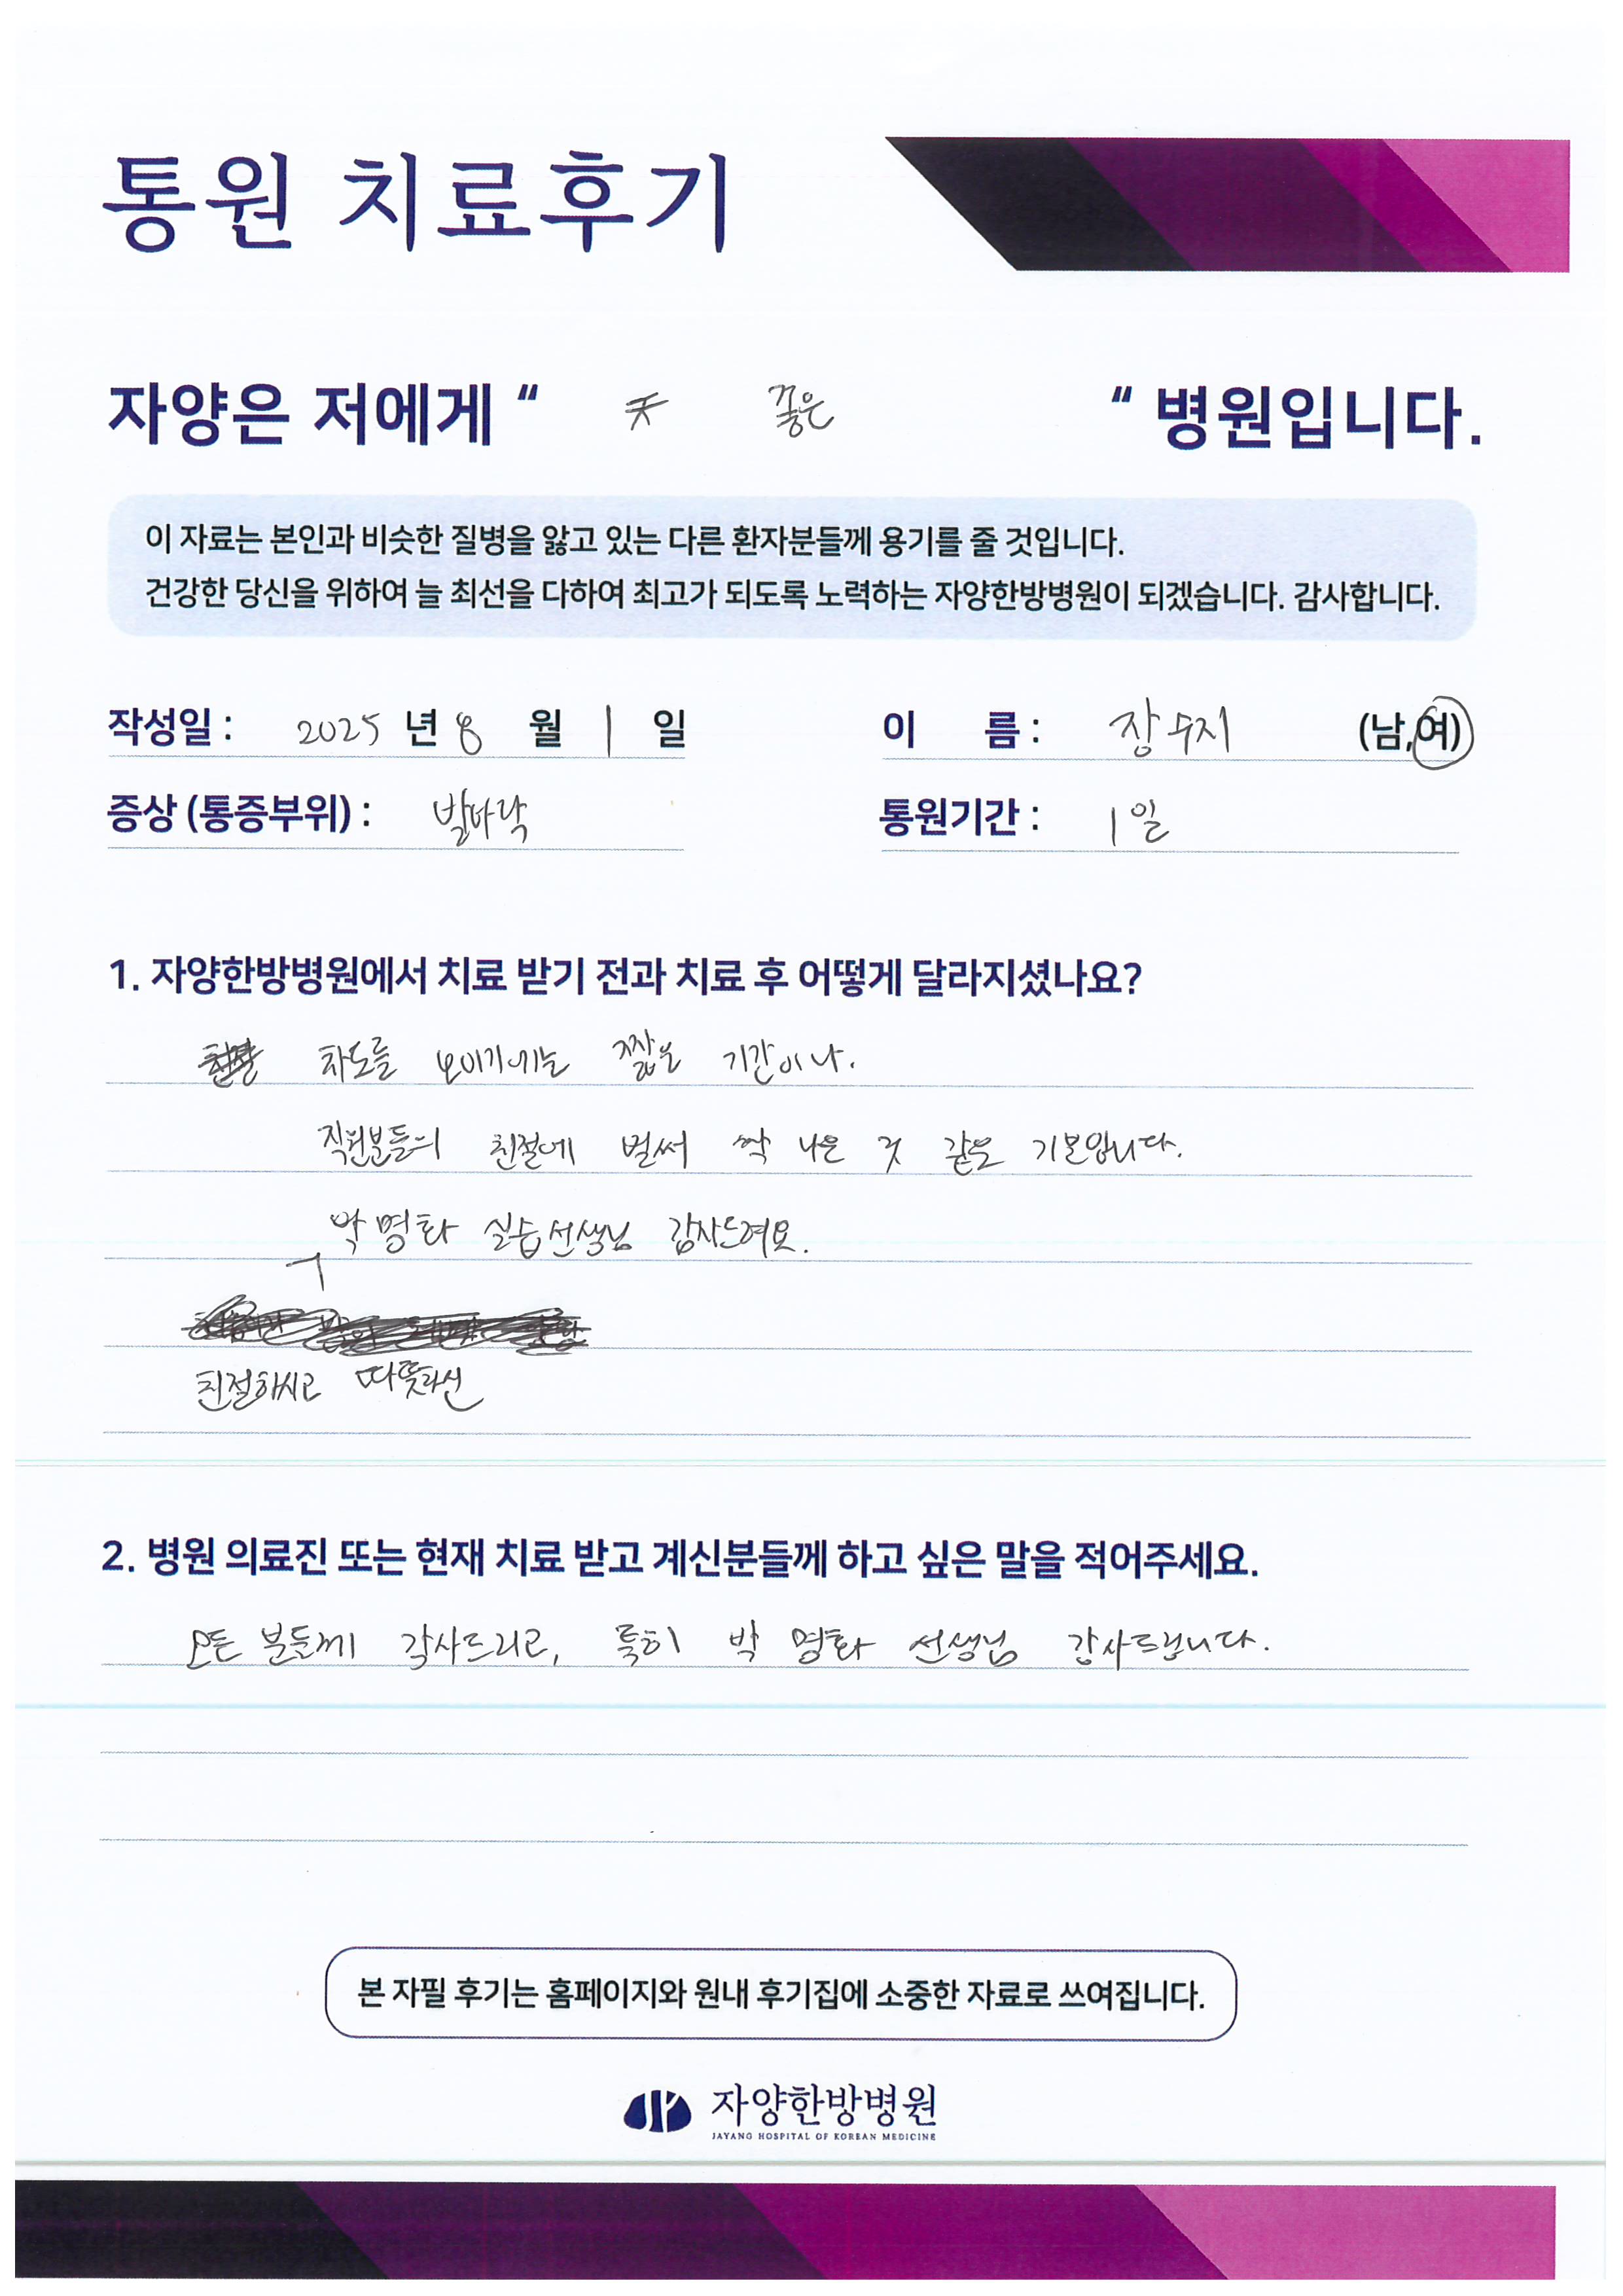 통원 치료후기
자양은 저에게 “ 좋은 “ 병원입니다.
이 자료는 본인과 비슷한 질병을 앓고 있는 다른 환자분들께 용기를 줄 것입니다.
건강한 당신을 위하여 늘 최선을 다하여 최고가 되도록 노력하는 자양한방병원이 되겠습니다. 감사합니다.
작성일 : 2025 년 8 월 1 일 이 름 : 장수지 (남,여)
증상 (통증부위) : 발바닥 통원기간 : 1일
1. 자양한방병원에서 치료 받기 전과 치료 후 어떻게 달라지셨나요?
차도를 보이기에는 짧은 기간이나.
직원분들의 친절에 벌써 싹 나은 것 같은 기분입니다.
박명화 실습선생님 감사드려요.
친절하시고 따뜻하신
2. 병원 의료진 또는 현재 치료 받고 계신분들께 하고 싶은 말을 적어주세요.
모든 분들께 감사드리고, 특히 박 명화 선생님 감사드립니다.
본 자필 후기는 홈페이지와 원내 후기집에 소중한 자료로 쓰여집니다.
자양한방병원
JAYANG HOSPITAL OF KOREAN MEDICINE